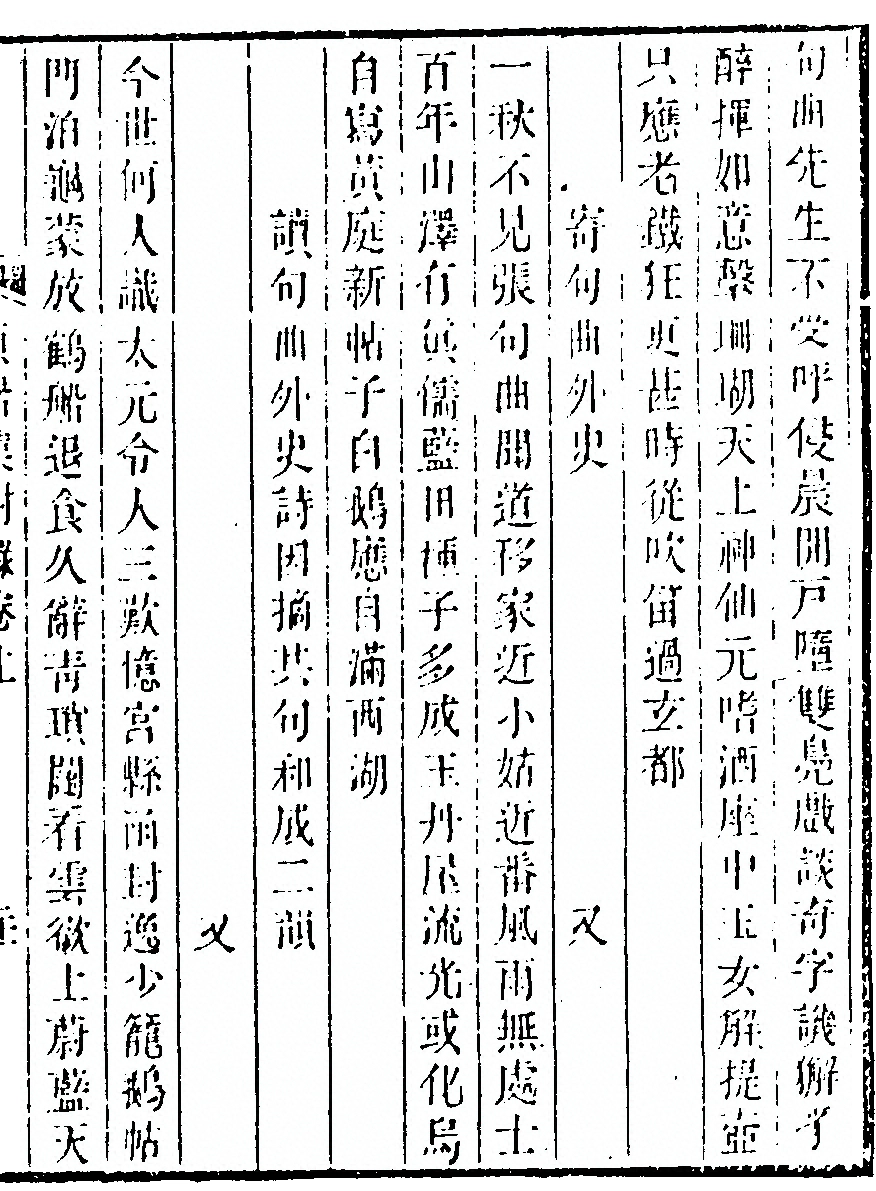 句曲先生不受呼侵晨開戸墮雙鳧戲談奇字譏獬豸
醉揮如意擊珊瑚天上神仙元嗜酒座中玉女解提壺
只應老鐵狂更甚時從吹笛過玄都
寄句曲外史　又
一秋不見張句曲聞道移家近小姑近番風雨無處士
百年山澤有眞儒藍田種子多成玉丹屋流光或化烏
自寫黃庭新帖子白鵝應自滿西湖
讀句曲外史詩因摘其句和成二韻
又
今世何人識太元令人三歎憶宮縣雨封逸少籠鵝帖
門泊龜蒙放鶴船退食久辭靑瑣闥看雲欲上蔚藍天